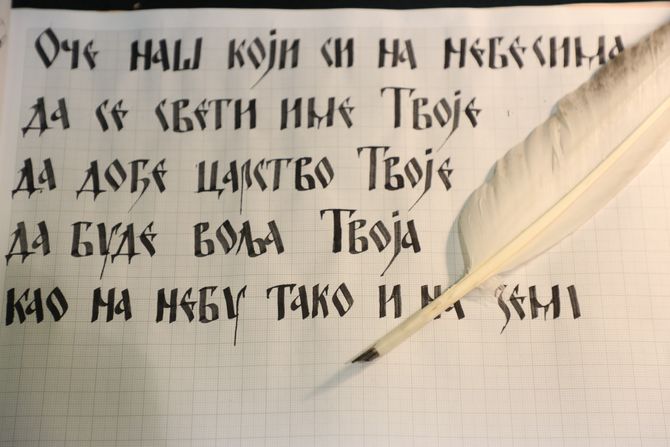 Оче наш који си на небесима
да се свети име Твоје
да дође царство Твоје
да буде воља Твоја
као на небу тако и на земі